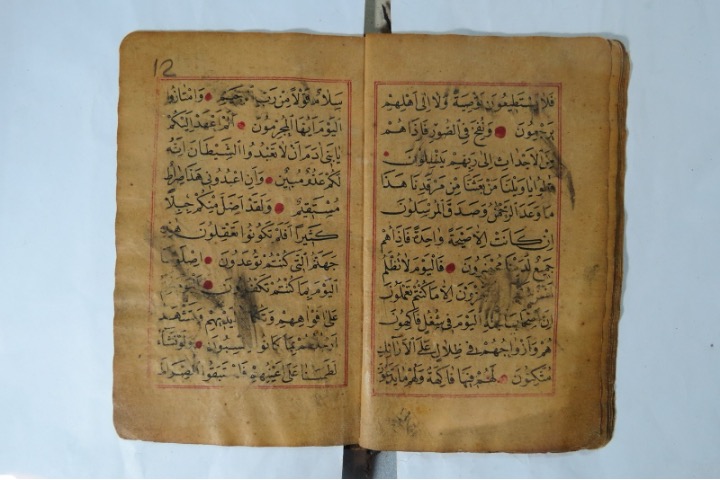 فَلَا يَسْتَطِيعُونَ تَوْصِيَةً وَلَا إِلَى أَهْلِهِمْ
يَرْجِعُونَ وَنُفِخَ فِي الصُّورِ فَإِذَا هُمْ
مِنَ الْأَجْدَاثِ إِلَى رَبِّهِمْ يَنْسِلُونَ
قَالُوا يَا وَيْلَنَا مَنْ بَعَثَنَا مِنْ مَرْقَدِنَا هَذَا
مَا وَعَدَ الرَّحْمَنُ وَصَدَقَ الْمُرْسَلُونَ
إِنْ كَانَتْ إِلَّا صَيْحَةً وَاحِدَةً فَإِذَا هُمْ
جَمِيعٌ لَدَيْنَا مُحْضَرُونَ فَالْيَوْمَ لَا تُظْلَمُ
تُجْزَوْنَ إِلَّا مَا كُنْتُمْ تَعْمَلُونَ
إِنَّ أَصْحَابَ الْجَنَّةِ الْيَوْمَ فِي شُغُلٍ فَاكِهُونَ
هُمْ وَأَزْوَاجُهُمْ فِي ظِلَالٍ عَلَى الْأَرَائِكِ
مُتَّكِئُونَ لَهُمْ فِيهَا فَاكِهَةٌ وَلَهُمْ مَا يَدَّعُونَ
12
سَلَامٌ قَوْلًا مِنْ رَبٍّ رَحِيمٍ وَامْتَازُوا
الْيَوْمَ أَيُّهَا الْمُجْرِمُونَ أَلَمْ أَعْهَدْ إِلَيْكُمْ
يَا بَنِي آدَمَ أَنْ لَا تَعْبُدُوا الشَّيْطَانَ إِنَّهُ
لَكُمْ عَدُوٌّ مُبِينٌ وَأَنِ اعْبُدُونِي هَذَا صِرَاطٌ
مُسْتَقِيمٌ وَلَقَدْ أَضَلَّ مِنْكُمْ جِبِلًّا
كَثِيرًا أَفَلَمْ تَكُونُوا تَعْقِلُونَ هَذِهِ
جَهَنَّمُ الَّتِي كُنْتُمْ تُوعَدُونَ اصْلَوْهَا
الْيَوْمَ بِمَا كُنْتُمْ تَكْفُرُونَ الْيَوْمَ
عَلَى أَفْوَاهِهِمْ وَتُكَلِّمُنَا أَيْدِيهِمْ وَتَشْهَدُ
أَرْجُلُهُمْ بِمَا كَانُوا يَكْسِبُونَ وَلَوْ نَشَاءُ
لَطَمَسْنَا عَلَى أَعْيُنِهِمْ فَاسْتَبَقُوا الصِّرَاطَ